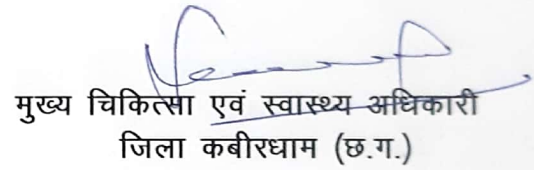 मुख्य चिकित्सा एवं स्वास्थ्य अधिकारी
जिला कबीरधाम (छ.ग.)